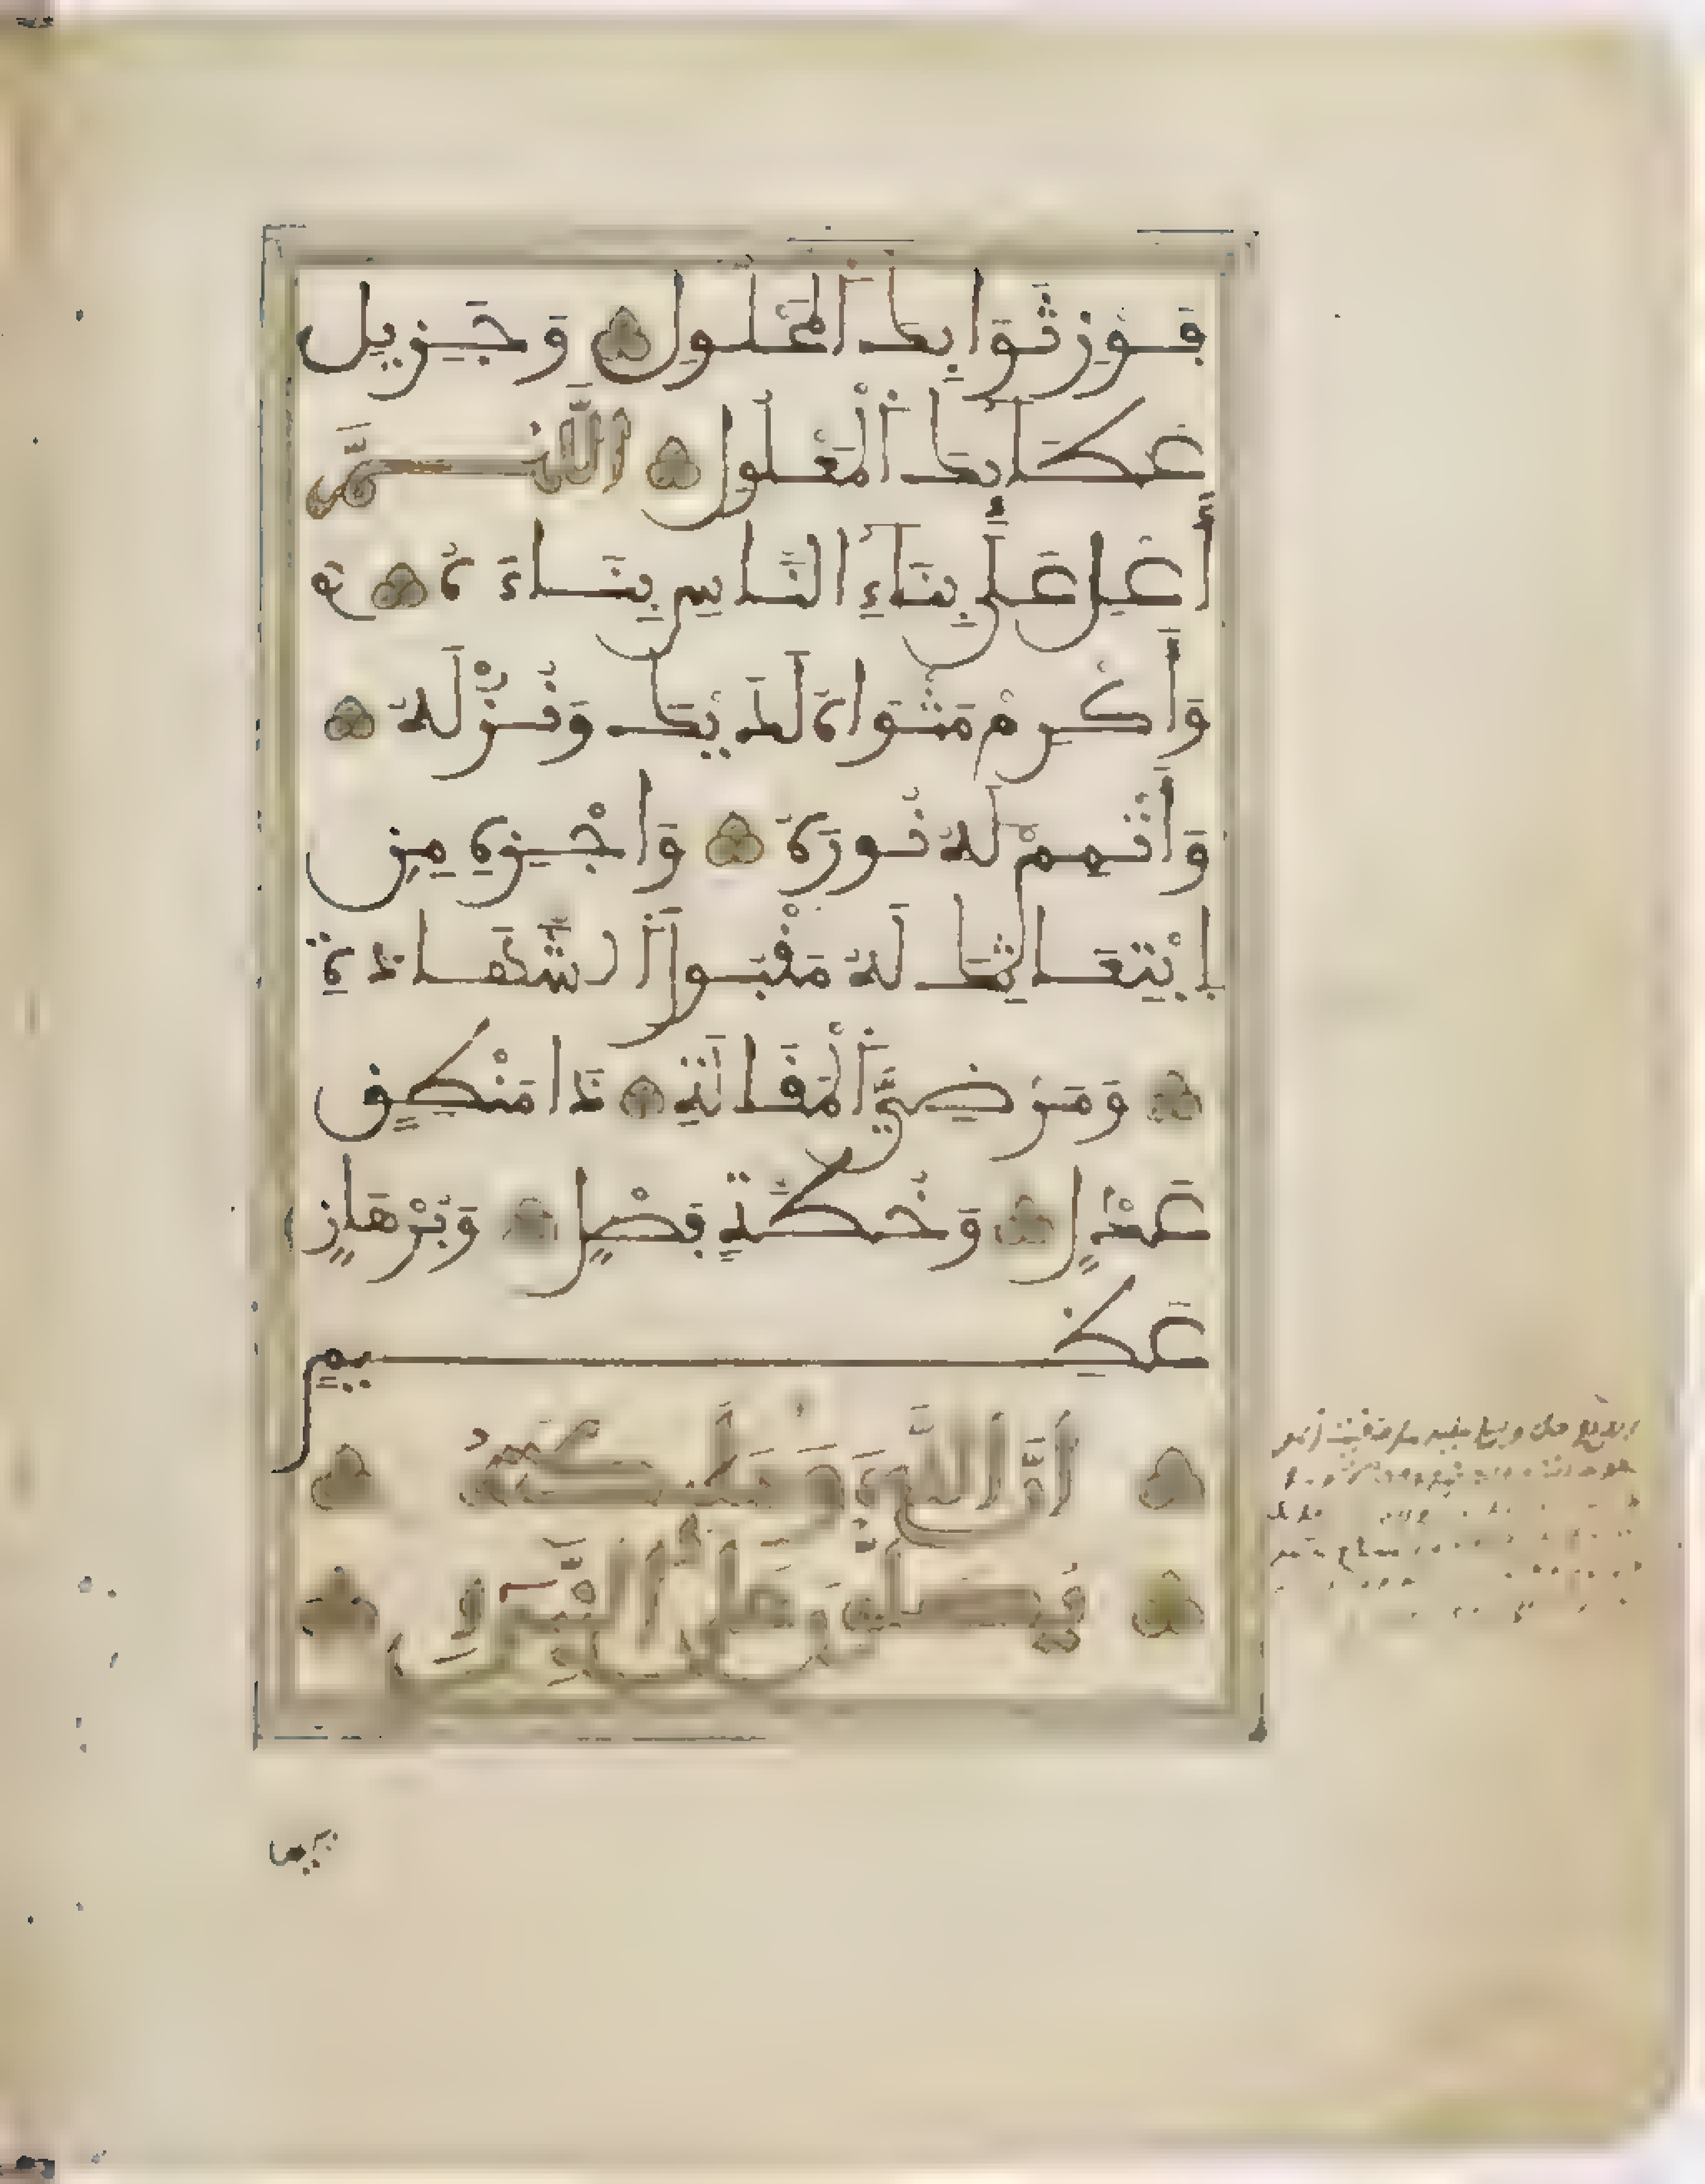 فَوْزِ ثَوَابِكَ الْمَحْلُولِ وَجَزِيلِ
عَطَائِكَ الْمَعْلُولِ اللَّهُمَّ
أَعْلِ عَلَى بِنَاءِ النَّاسِ بِنَاءَهُ
وَأَكْرِمْ مَثْوَاهُ لَدَيْكَ وَنُزْلَهُ
وَأَتْمِمْ لَهُ نُورَهُ وَاجْزِهِ مِنِ
ابْتِعَاثِكَ لَهُ مَقْبُولَ الشَّهَادَةِ
وَمَرْضِيَّ الْمَقَالَةِ ذَا مَنْطِقٍ
عَدْلٍ وَخُطَّةٍ فَصْلٍ وَبُرْهَانٍ
عَظِيمٍ
إِنَّ اللَّهَ وَمَلَائِكَتَهُ
يُصَلُّونَ عَلَى النَّبِيِّ